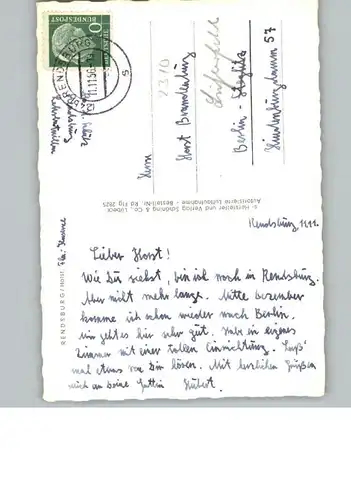 RENDSBURG
11.11.56
DEUTSCHE
BUNDESPOST
10
Herrn
Horst Brandenburg
Berlin - Steglitz
Hindenburgdamm 57
2310
© Hersteller und Verlag Schöning & Co., Lübeck
Autorisierte Luftaufnahme - Bestell-Nr. Rg Flg 2925
RENDSBURG/HOLST.
Rendsburg, 11.11.
Lieber Horst!
Wie Du siehst, bin ich noch in Rendsburg.
Aber nicht mehr lange. Mitte Dezember
komme ich schon wieder nach Berlin.
Mir geht es hier sehr gut. Hab ein eigenes
Zimmer mit einer tollen Einrichtung. Laß'
mal etwas von Dir hören. Mit herzlichen Grüßen
auch an Deine Gattin Hubert.